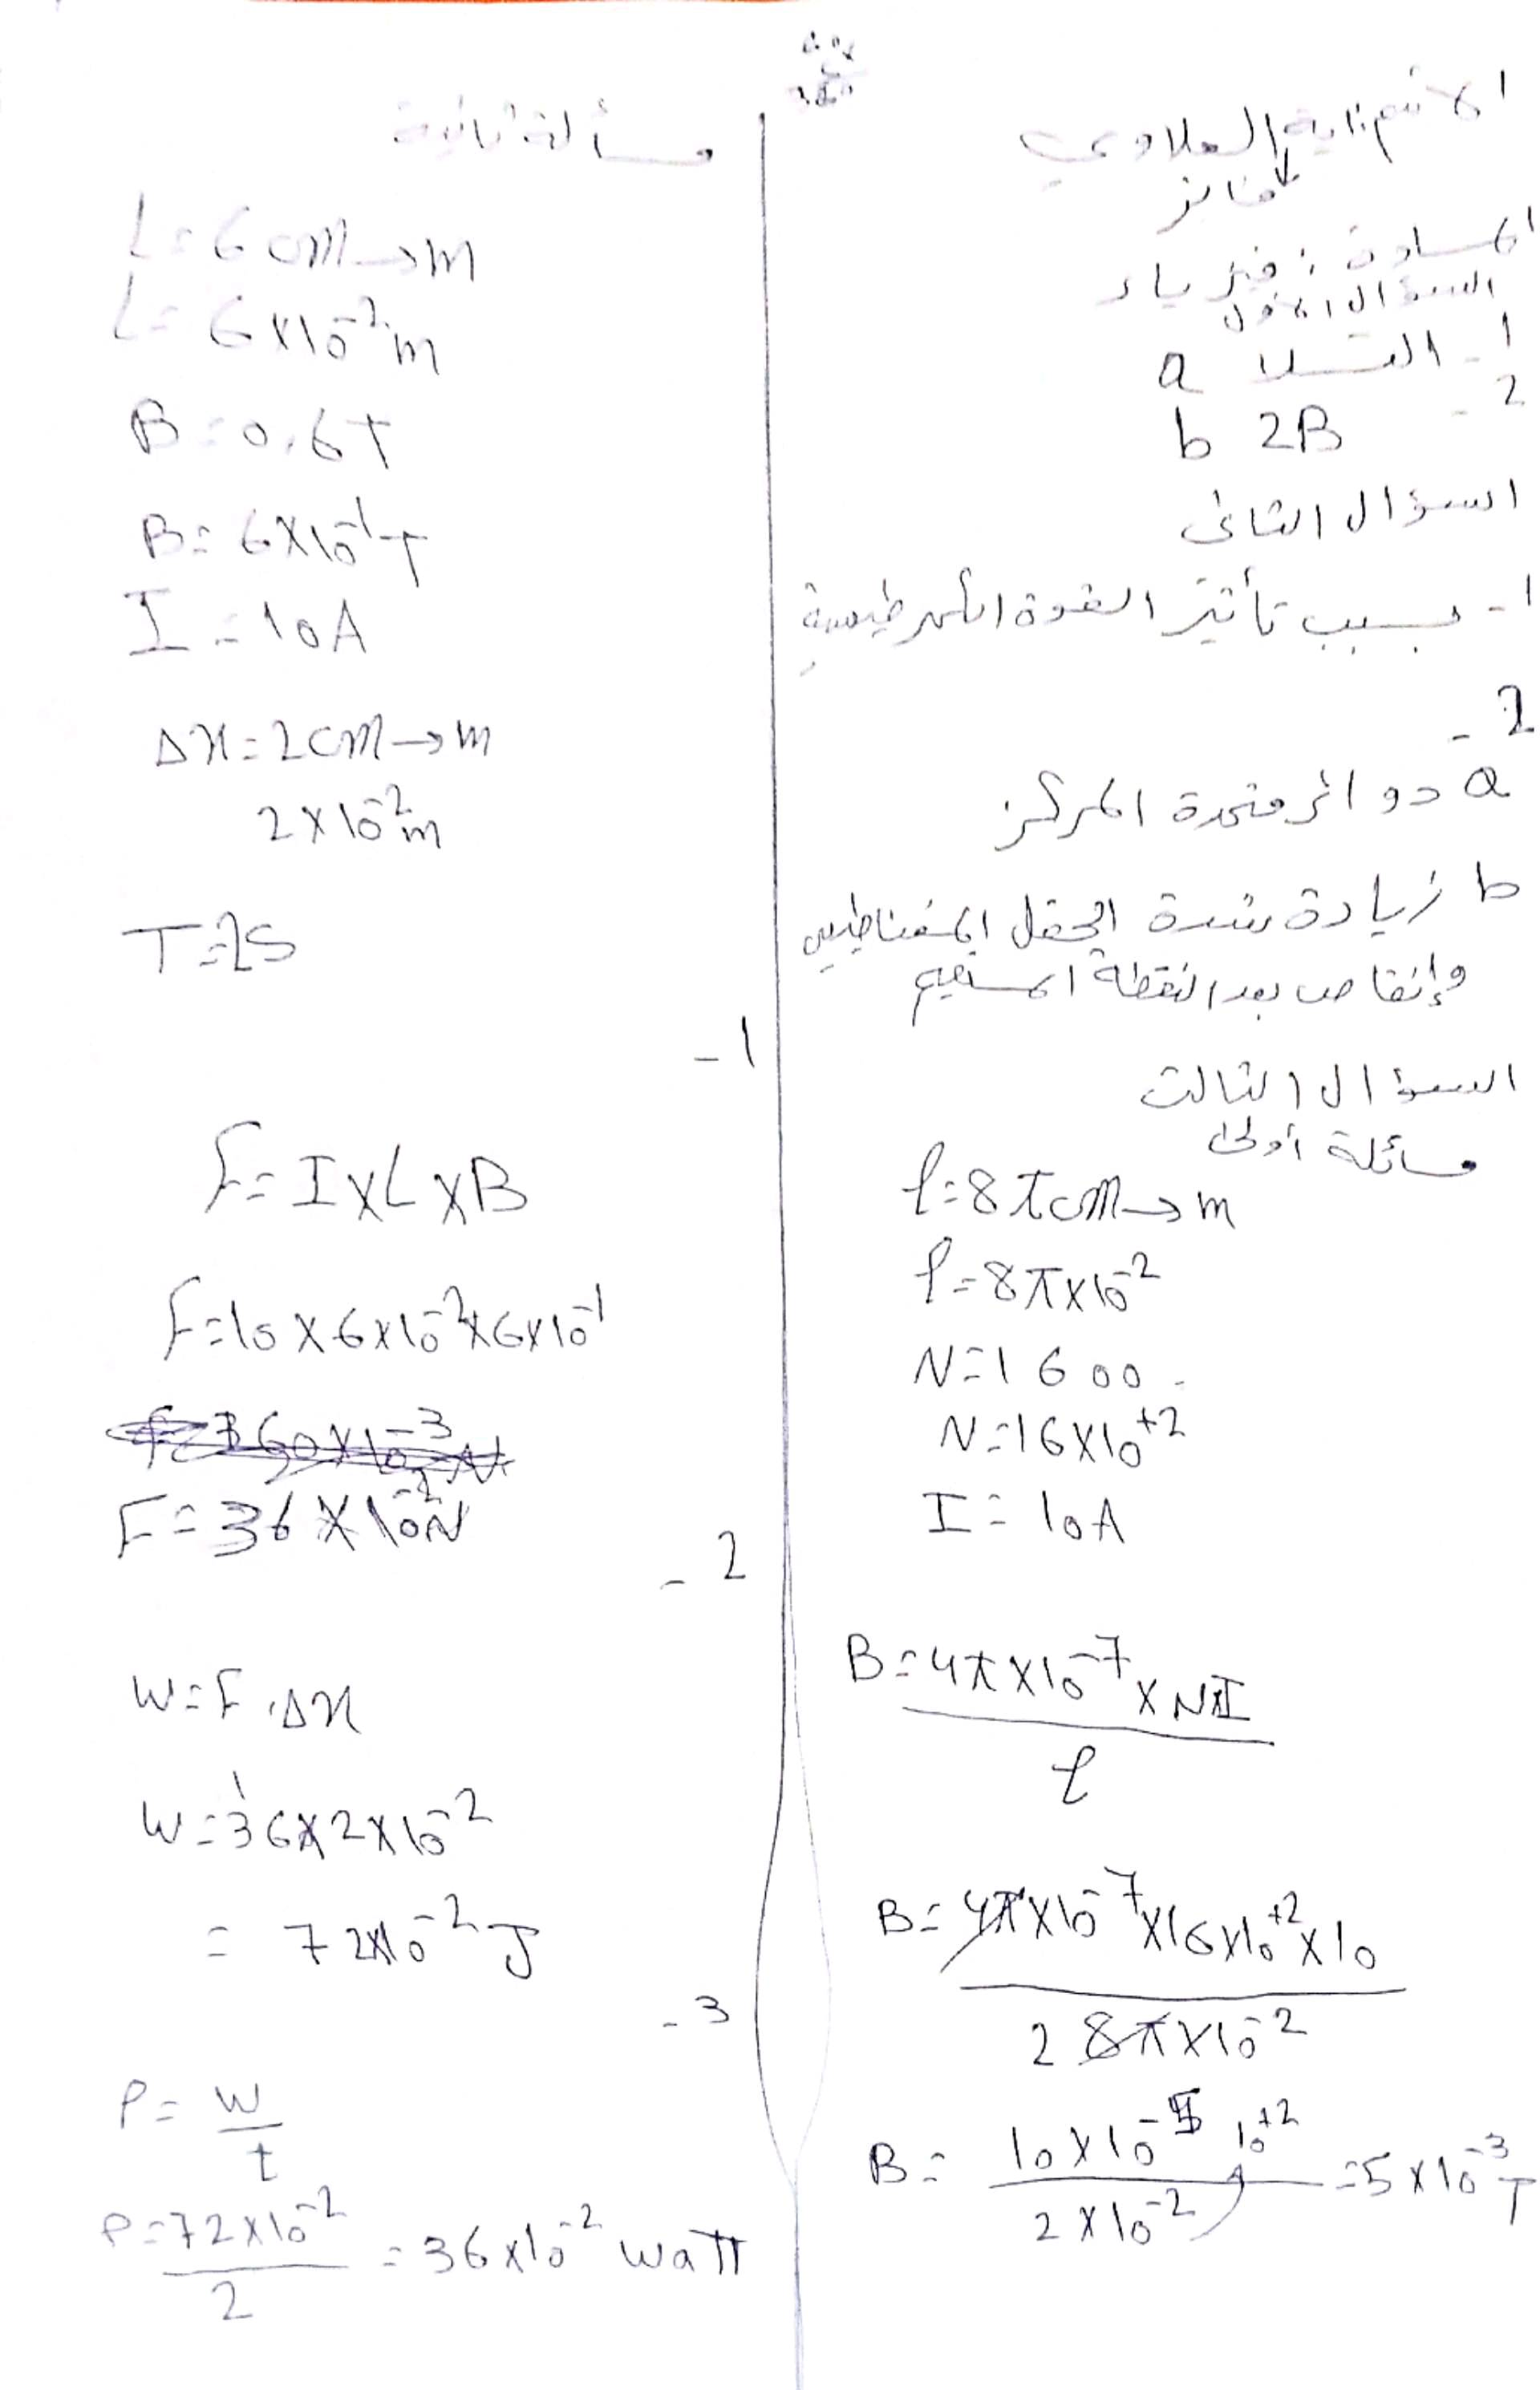 الاسم: آية العلاوي
المادة: فيزياء
السؤال الأول
1- التسلا a
2- 2B b
السؤال الثاني
1- بسبب تأثير القوة المغرطيسية
2-
a دوائر متحدة المركز
b زيادة شدة الحقل المغناطيسي
وإنقاص بعد النقطة المستقيم
السؤال الثالث
مسائلة أولى
l=8πcm→m
l=8π×10^-2
N=1600
N=16×10^+2
I=10A
B=4π×10^-7×N×I / l
B=4π×10^-7×16×10^+2×10 / 2 8π×10^-2
B= 10×10^-5 10^+2 / 2×10^-2 =5×10^-3 T
مسألة ثانية
L=6cm→m
L=6×10^-2 m
B=0,6T
B=6×10^-1 T
I=10A
Δx=2cm→m
2×10^-2 m
T=2S
1-
F=I×L×B
F=10×6×10^-2×6×10^-1
F=360×10^-3 N
F=36×10^-2 N
2-
W=F.Δx
W=36×2×10^-2
= 72×10^-2 J
3-
P= W / t
P=72×10^-2 / 2 =36×10^-2 watt